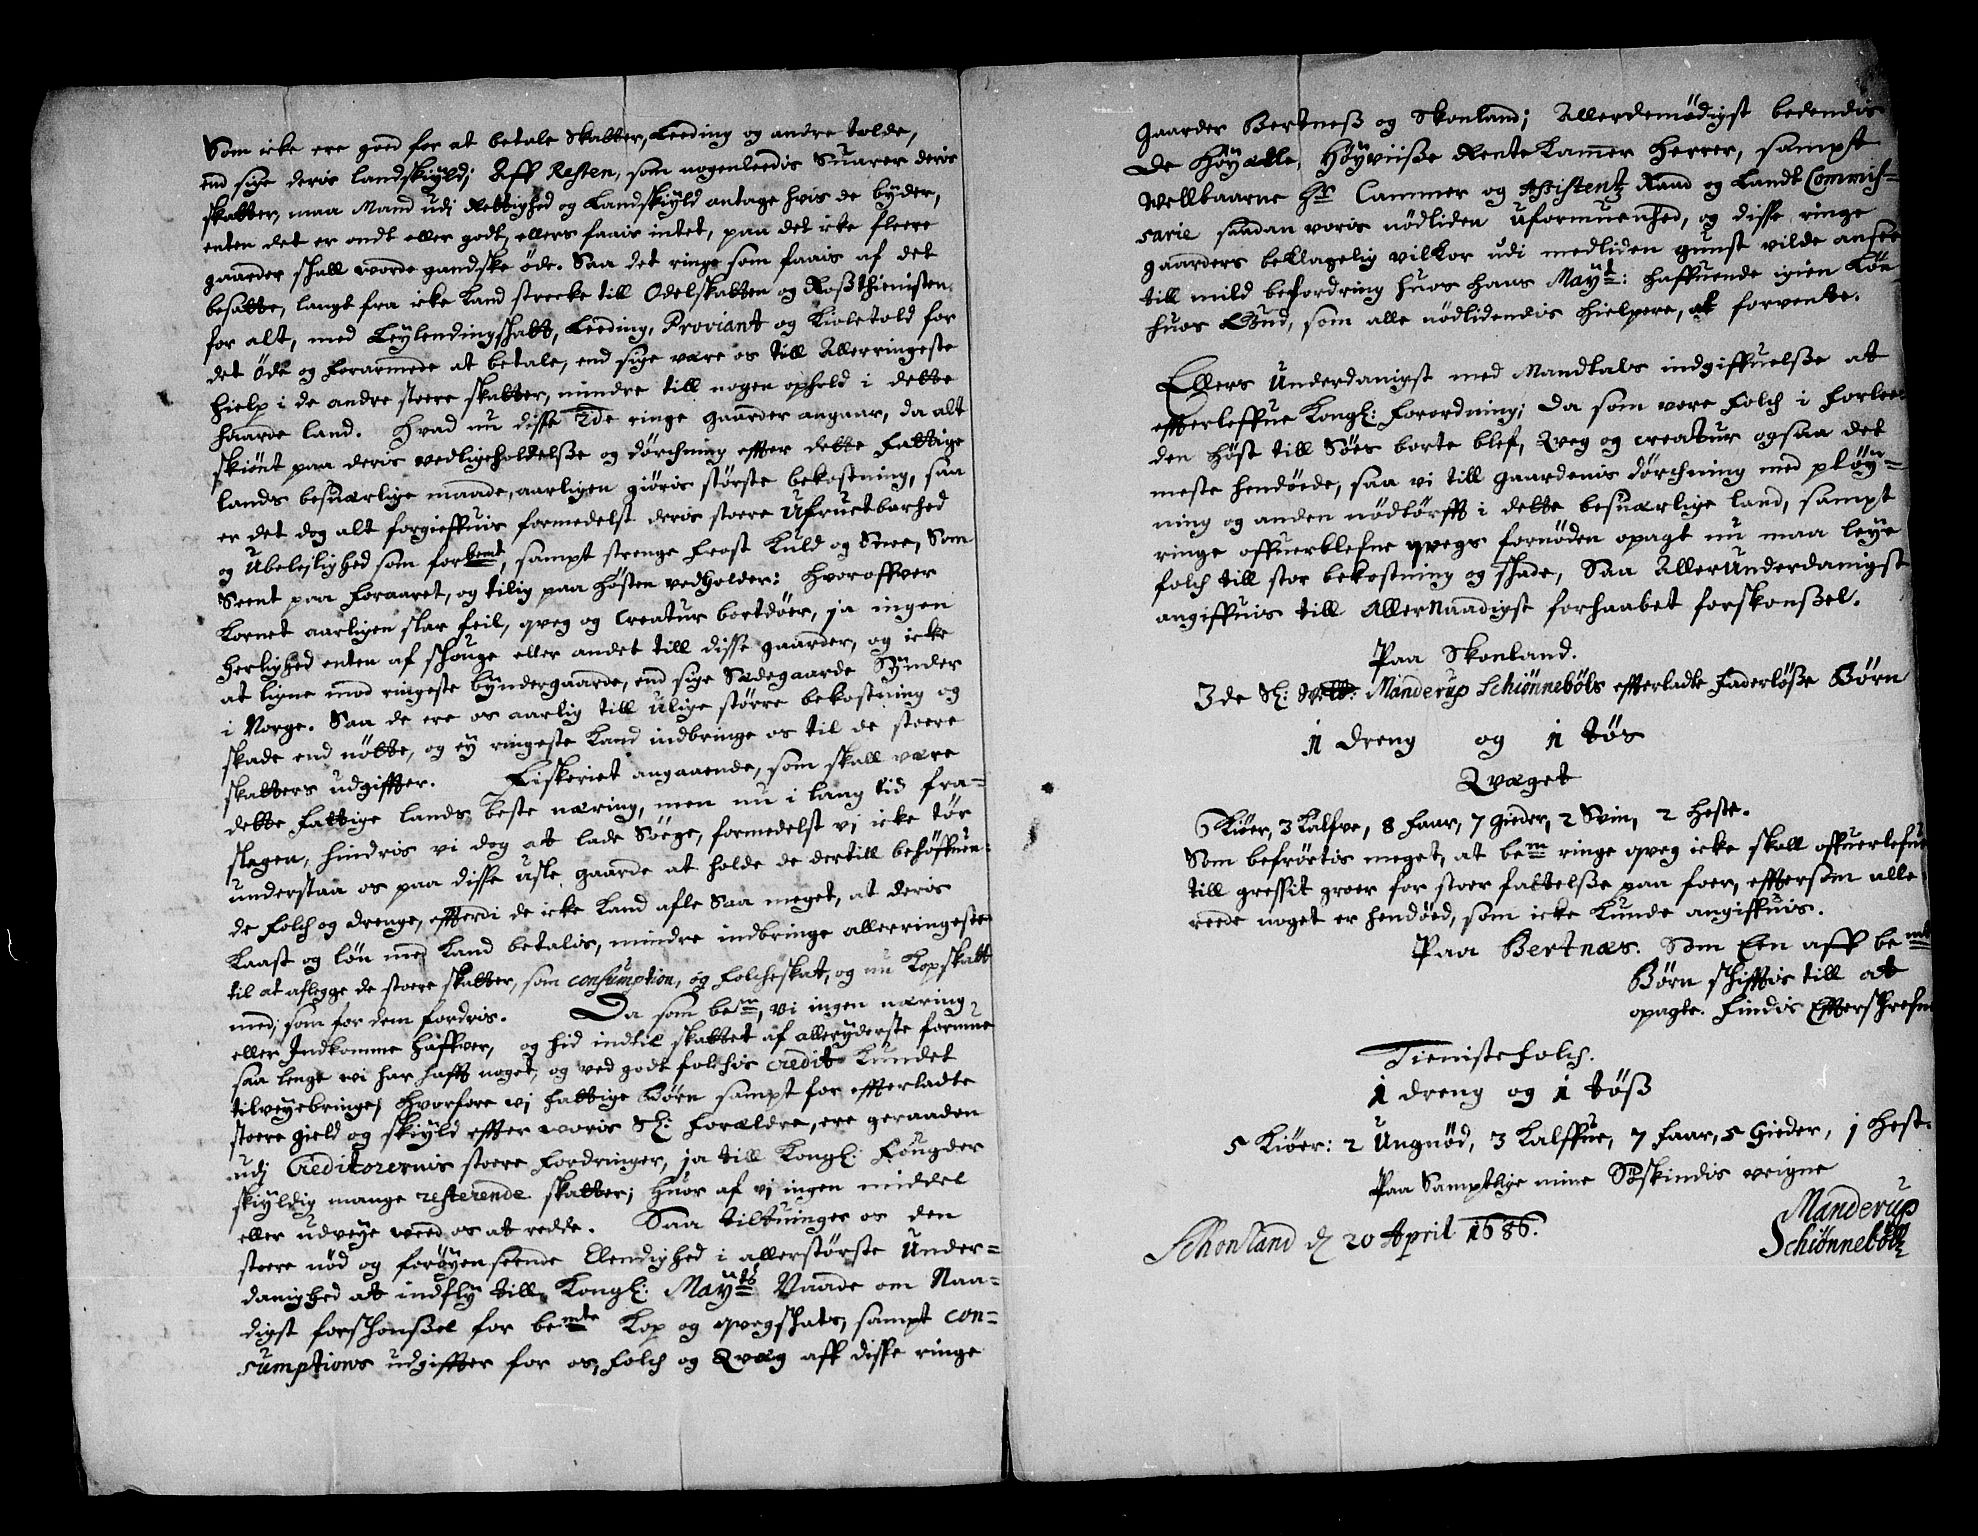 Som icke ere goed for at betale Skatter, Leeding og andre tolde,
end sige deris landskyld; Aff Resten, som nogenleedis Suarer deris
skatter, maa Mand udj Rettighed og Landskyld antage hvis de byder,
enten det er ondt eller godt, ellers faais intet, paa det icke fleere
gaarder schall worde gandske øde. Saa det ringe som faais af det
besatte, langt fra icke kand strecke till Odelskatten og Roßthienisten
for alt, med Leylendingschatt, Leeding, Proviant og Kioletold for
det Øde og Forarmede at betale, end sige være os till Allerringeste
hielp i de andre stoere skatter, mindre till nogen ophold i dette
haarde land. Hvad nu disse 2de ringe gaarder angaar, da alt
skiønt paa deris vedligeholdelße og dørchning effter dette Fattige
lands besuærlige maade, aarligen giøris største bekostning, saa
er det dog alt forgieffuis formedelst deris stoere Ufructbarhed
og Ubeleilighed som forbemt, sampt strenge Frost Kuld og Snee, Som
Seent paa Foraaret, og tilig paa Høsten vedholder: Hvoroffver
Kornet aarligen slar feil, qveg og Creatur bortdøer, ja ingen
herlighed enten af schouge eller andet till disse gaarder, og icke
at ligne mod ringeste Bøndergaarde, end sige Sædegaarde Synder
i Norge. Saa de ere os aarlig till Ulige større bekostning og
skade end nötte, og ey ringeste Kand indbringe os til de stoere
skatters udgiffter. Fiskeriet angaaende, som skall være
dette Fattige lands beste næring, men nu i lang tid fra=
slagen, hindris vi dog at lade Søege, formedelst vi icke tør
understaa os paa disse usle gaarde at holde de dertill behøffuen=
de Folch og drenge, effterdi de icke kand afle Saa meget, at deris
Kaast og løn med kand betalis, mindre indbringe allerringeste
til at aflegge de stoere skatter, som consumption, og Folcheskat, og nu Kopskatt
med, som for dem fordris. Da som bem, vi ingen næring
eller Indkomme haffver, og hid indtil skattet af alleryderste formue
saa lenge vi har hafft noget, og ved godt folchis credit Kundet
tilveyebringe; Hvorfore vi Fattige Børn sampt for effterladte
stoere gield og skyld effter voris Sl: Forældre, ere geraaden
udj Creditorernis stoere Fordringer, ja till Kongl: Fougder
skyldig mange resterende skatter; Huor af vi ingen middel
eller udveye veed os at redde. Saa tiltuinges os den
stoere nød og forøyenseende Elendighed i allerstørste Under=
danighed at indfly till Kongl: Mayts Naade om Naa=
digst forschonßel for bemte Kop og qvegschats, sampt con=
sumptions udgiffter for os, Folch og Qvæg aff disse ringe
gaarder Bertneß og Skonland; Allerdemødigst bedendis
De Høyædle, Høyviiße RenteKamer Herrer, sampt
Wellbaarne Hr Cammer og Assistentz Raad og Landt Commis=
sarie saadan voris nødliden Uformuenhed, og disse ringe
gaarders beklagelig vilkor udi medliden gunst vilde ansee
till mild befordring huos Hans Mayt: haffuende igien Løn
huos Gud, som alle nødlidendis hielpere, at forvente.
Ellers Underdanigst med Mandtals indgiffuelße at
effterleffue Kongl: Forordning; Da som vore Folch i Forlee=
den Høst till Søes borte blef, Qveg og Creatur ogsaa det
meste hendøede, saa vi till gaardenis dørchning med pløy=
ning og anden nødtørfft i dette besuærlige land, sampt
ringe offuerblefne qvegs fornøden opagt nu maa leye
folch till stor bekostning og schade, Saa AllerUnderdanigst
angiffuis till AllerNaadigst forhaabet forskonßel.
Paa Skonland.
3de Sl: Manderup Schiønnebøls effterladte Faderløße Børn
1 Dreng og 1 tøs
Qvæget
6 Kiøer, 3 Kalfve, 8 Faar, 7 gieder, 2 Svin, 2 Heste.
Som befrørtis meget, at bem ringe qveg icke skall offuerlefue
till greffit groer for stoer fattelße paa foer, effttersom alle=
reede noget er hendøed, som icke Kunde angiffuis.
Paa Bertnæs. Som Een aff bemte
Børn schifftis till at
opagte. Findis Effterschrefne
Tienistefolch.
1 dreng og 1 töß
5 Kiøer: 2 Ungnød, 3 Kalffue, 7 Faar, 5 Gieder, 1 Hest.
Paa Samptlige mine Søskindis veigne
Manderup
Schonland d. 20 April 1686. Schiønnebøll